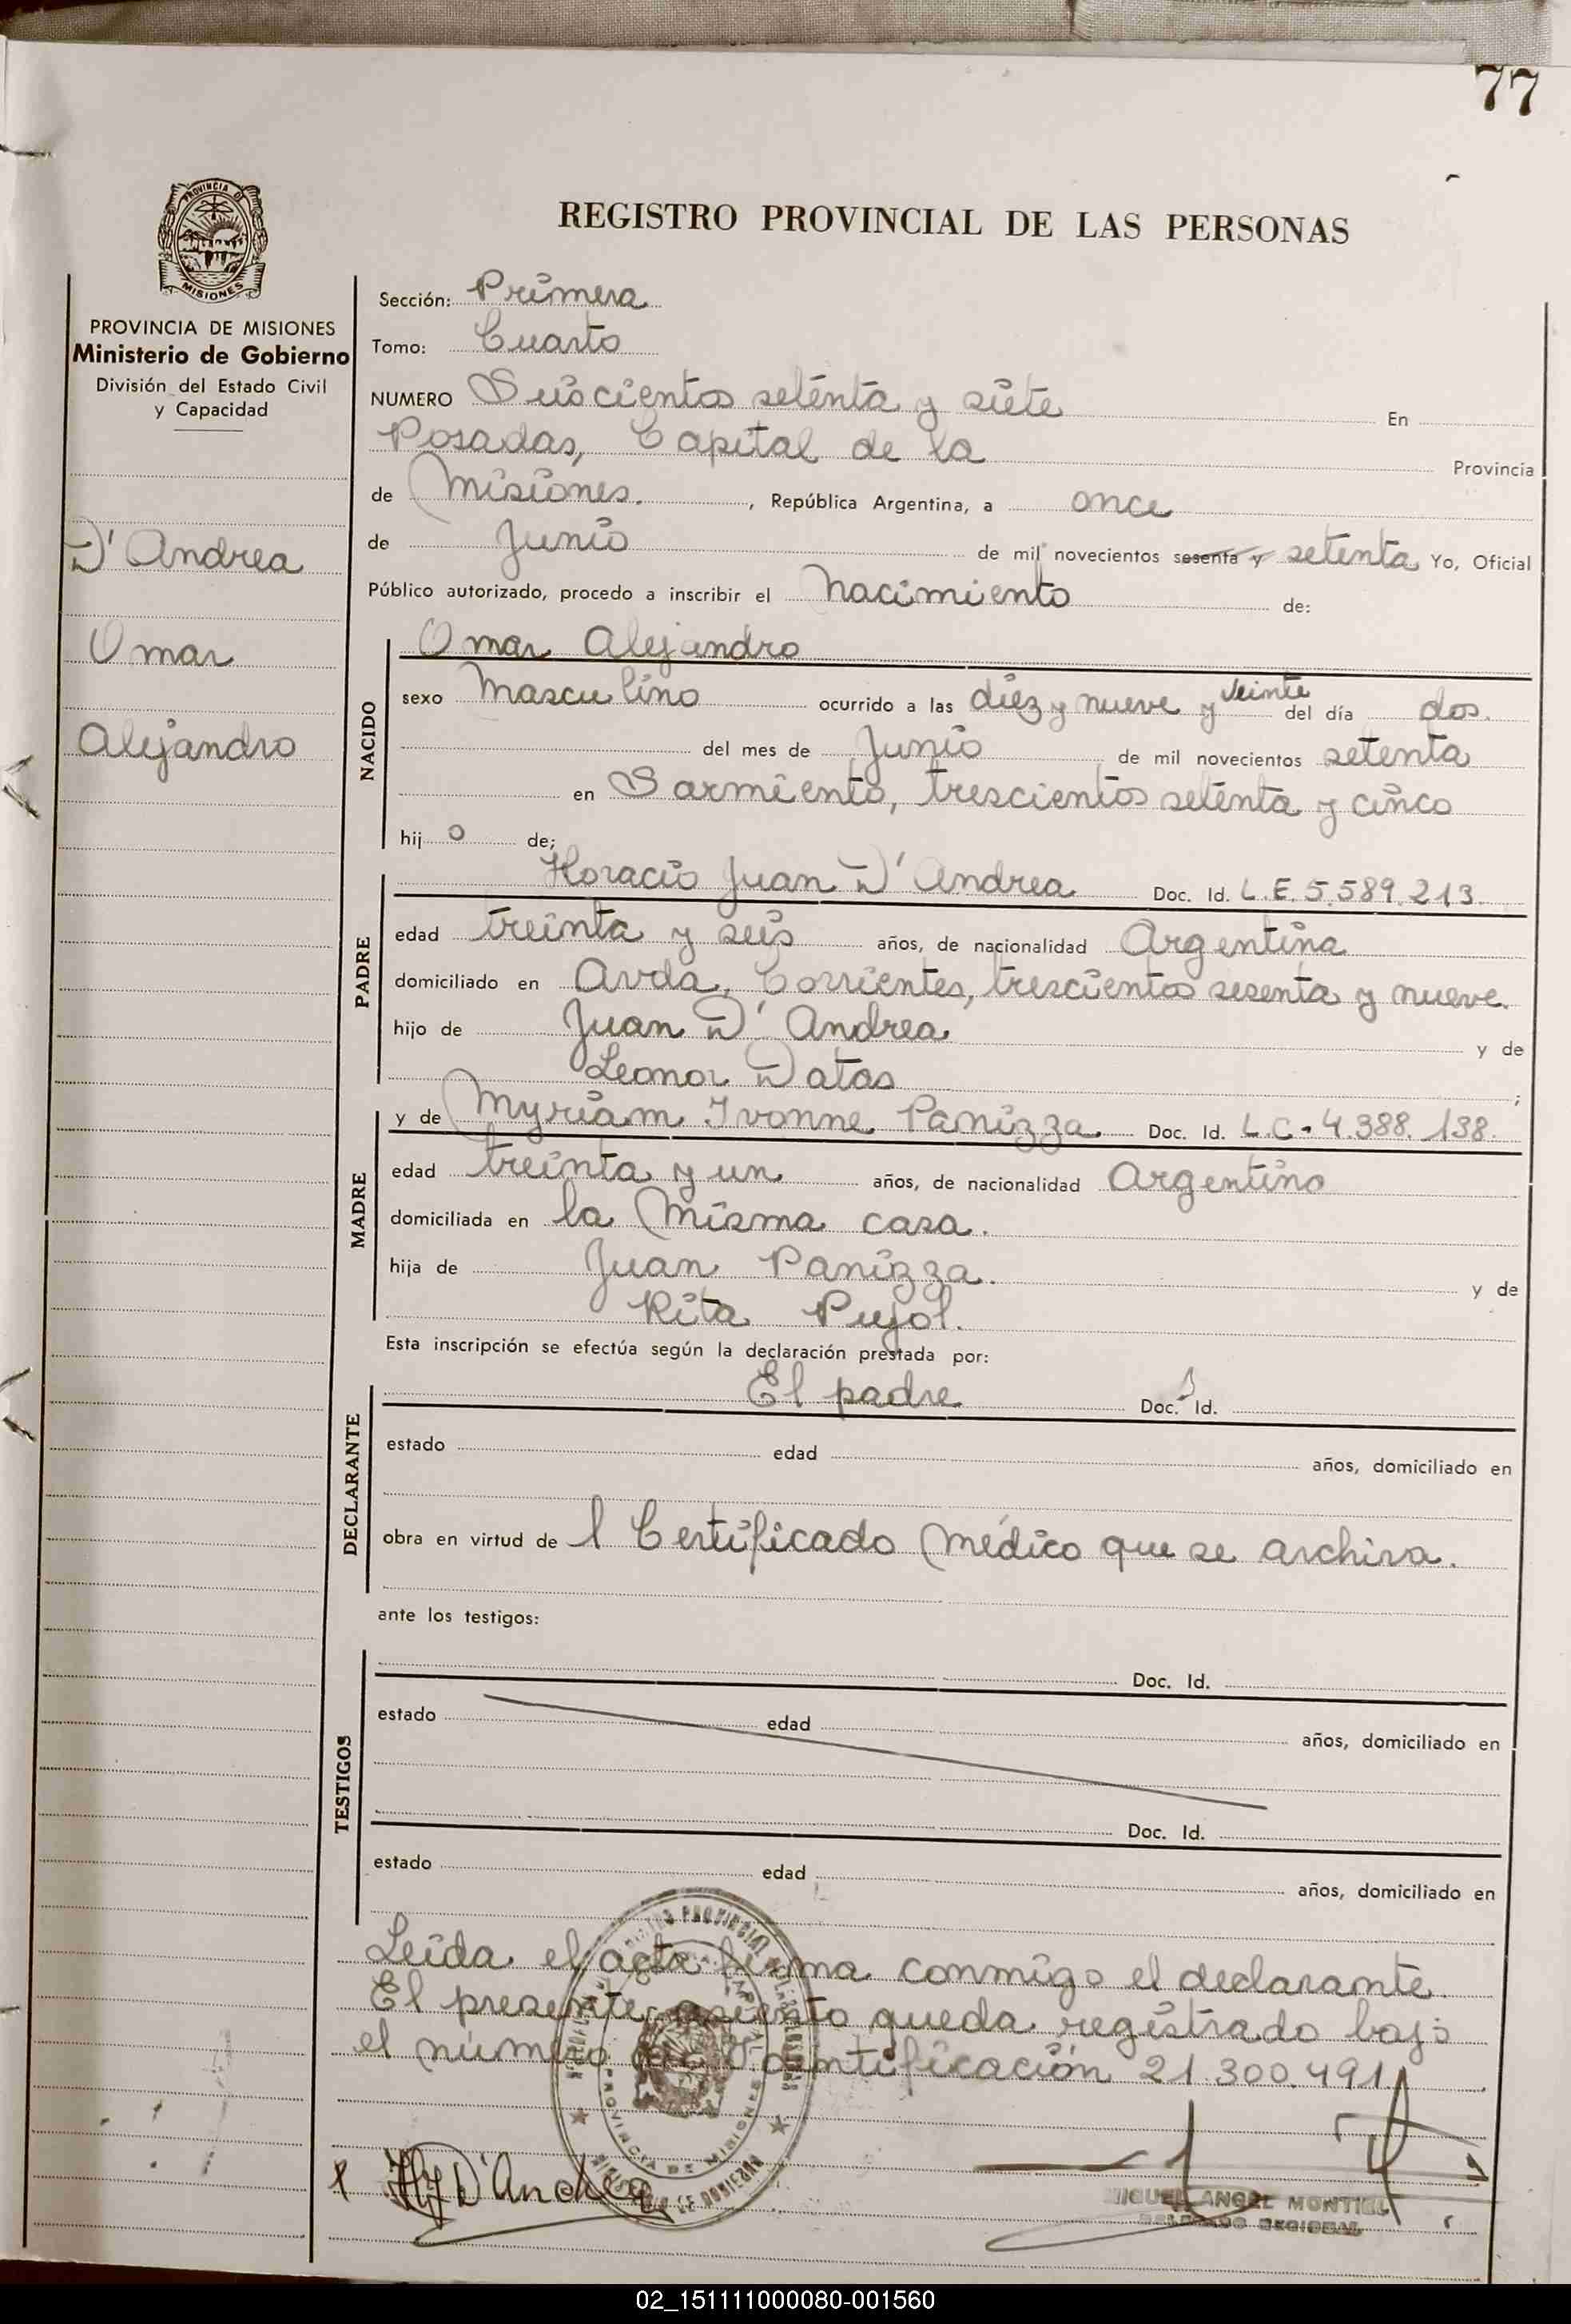 77
PROVINCIA DE
MISIONES
REGISTRO PROVINCIAL DE LAS PERSONAS
PROVINCIA DE MISIONES
Ministerio de Gobierno
División del Estado Civil
y Capacidad
D'Andrea
Omar
Alejandro
Sección: Primera
Tomo: Cuarto
NUMERO Seiscientos setenta y siete En
Posadas, Capital de la Provincia
de Misiones. , República Argentina, a once
de Junio de mil novecientos sesenta y setenta Yo, Oficial
Público autorizado, procedo a inscribir el Nacimiento de:
NACIDO
Omar Alejandro
sexo Masculino ocurrido a las diez y nueve y veinte del día dos.
del mes de Junio de mil novecientos setenta
en Sarmiento, trescientos setenta y cinco
hij o de;
PADRE
Horacio Juan D'Andrea Doc. Id. L.E. 5.589.213.
edad treinta y seis años, de nacionalidad Argentina
domiciliado en Avda. Corrientes, trescientos sesenta y nueve.
hijo de Juan D'Andrea y de
Leonor Datas ;
MADRE
y de Myriam Ivonne Panizza Doc. Id. L.C. 4.388.138.
edad treinta y un años, de nacionalidad Argentino
domiciliada en la Misma casa.
hija de Juan Panizza. y de
Rita Pujol.
Esta inscripción se efectúa según la declaración prestada por:
DECLARANTE
El padre Doc. Id.
estado edad años, domiciliado en
obra en virtud de l Certificado Médico que se archiva.
ante los testigos:
TESTIGOS
Doc. Id.
estado edad años, domiciliado en
Doc. Id.
estado edad años, domiciliado en
Leida el acta firma conmigo el declarante.
El presente asiento queda registrado bajo
el número identificación 21.300.491
H J D'Andrea
MIGUEL ANGEL MONTIEL
DELEGADO REGIONAL
02_151111000080-001560